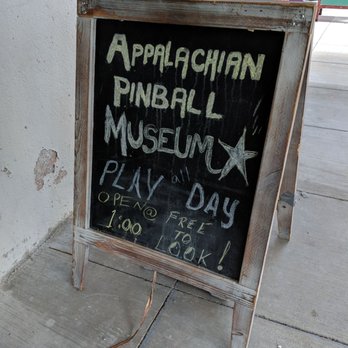 APPALACHIAN
PINBALL
MUSEUM
PLAY all DAY
OPEN @
1:00
FREE
TO
LOOK!